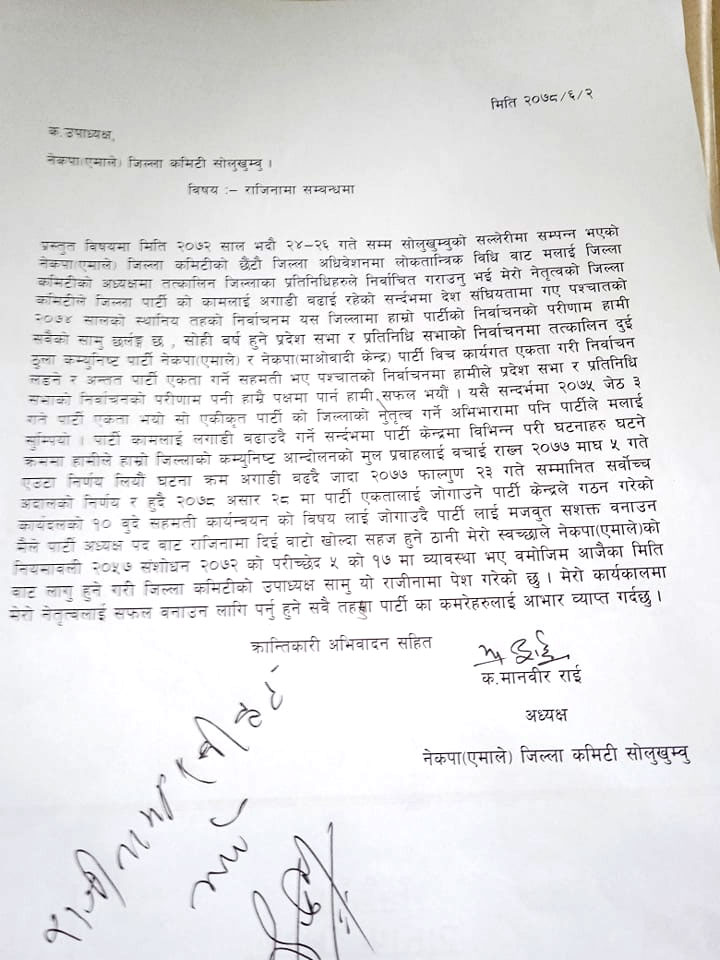 मिति २०७८/६/२
क. उपाध्यक्ष,
नेकपा(एमाले) जिल्ला कमिटी सोलुखुम्वु ।
विषय :– राजिनामा सम्वन्धमा
प्रस्तुत विषयमा मिति २०७२ साल भदौ २४-२६ गते सम्म सोलुखुम्वुको सल्लेरीमा सम्पन्न भएको
नेकपा(एमाले) जिल्ला कमिटीको छैटौ जिल्ला अधिवेशनमा लोकतान्त्रिक विधि वाट मलाई जिल्ला
कमिटीको अध्यक्षमा तत्कालिन जिल्लाका प्रतिनिधिहरुले निर्वाचित गराउनु भई मेरो नेतृत्वको जिल्ला
कमिटीले जिल्ला पार्टी को कामलाई अगाडी वढाई रहेको सन्दर्भमा देश संघियतामा गए पश्चातको
२०७४ सालको स्थानिय तहको निर्वाचनम यस जिल्लामा हाम्रो पार्टीको निर्वाचनको परीणाम हामी
सवैको सामु छर्लङ्ग छ , सोही वर्ष हुने प्रदेश सभा र प्रतिनिधि सभाको निर्वाचनमा तत्कालिन दुई
ठुला कम्युनिष्ट पार्टी नेकपा(एमाले) र नेकपा(माओवादी केन्द्र) पार्टी विच कार्यगत एकता गरी निर्वाचन
लडने र अन्तत पार्टी एकता गर्ने सहमती भए पश्चातको निर्वाचनमा हामीले प्रदेश सभा र प्रतिनिधि
सभाको निर्वाचनको परीणाम पनी हाम्रै पक्षमा पार्न हामी सफल भयौं । यसै सन्दर्भमा २०७५ जेठ ३
गते पार्टी एकता भयो सो एकीकृत पार्टी को जिल्लाको नेुतृत्व गर्ने अभिभारामा पनि पार्टीले मलाई
सुम्पियो । पार्टी कामलाई लगाडी वढाउदै गर्ने सन्दर्भमा पार्टी केन्द्रमा विभिन्न परी घटनाहरु घटने
क्रममा हामीले हाम्रो जिल्लाको कम्युनिष्ट आन्दोलनको मुल प्रवाहलाई वचाई राख्न २०७७ माघ ५ गते
एउटा निर्णय लियौं घटना क्रम अगाडी वढदै जादा २०७७ फाल्गुण २३ गते सम्मानित सर्वोच्च
अदालको निर्णय र हुदै २०७८ असार २८ मा पार्टी एकतालाई जोगाउने पार्टी केन्द्रले गठन गरेको
कार्यदलको १० वुदे सहमती कार्यन्वयन को विषय लाई जोगाउदै पार्टी लाई मजवुत सशक्त वनाउन
मैले पार्टी अध्यक्ष पद वाट राजिनामा दिई वाटो खोल्दा सहज हुने ठानी मेरो स्वच्छाले नेकपा(एमाले)को
नियमावली २०५७ संशोधन २०७२ को परीच्छेद ५ को १७ मा व्यावस्था भए वमोजिम आजैका मिति
वाट लागु हुने गरी जिल्ला कमिटीको उपाध्यक्ष सामु यो राजीनामा पेश गरेको छु । मेरो कार्यकालमा
मेरो नेतृत्वलाई सफल वनाउन लागि पर्नु हुने सवै तहका पार्टी का कमरेहरुलाई आभार व्याप्त गर्दछु ।
क्रान्तिकारी अभिवादन सहित
क.मानवीर राई
अध्यक्ष
नेकपा(एमाले) जिल्ला कमिटी सोलुखुम्वु